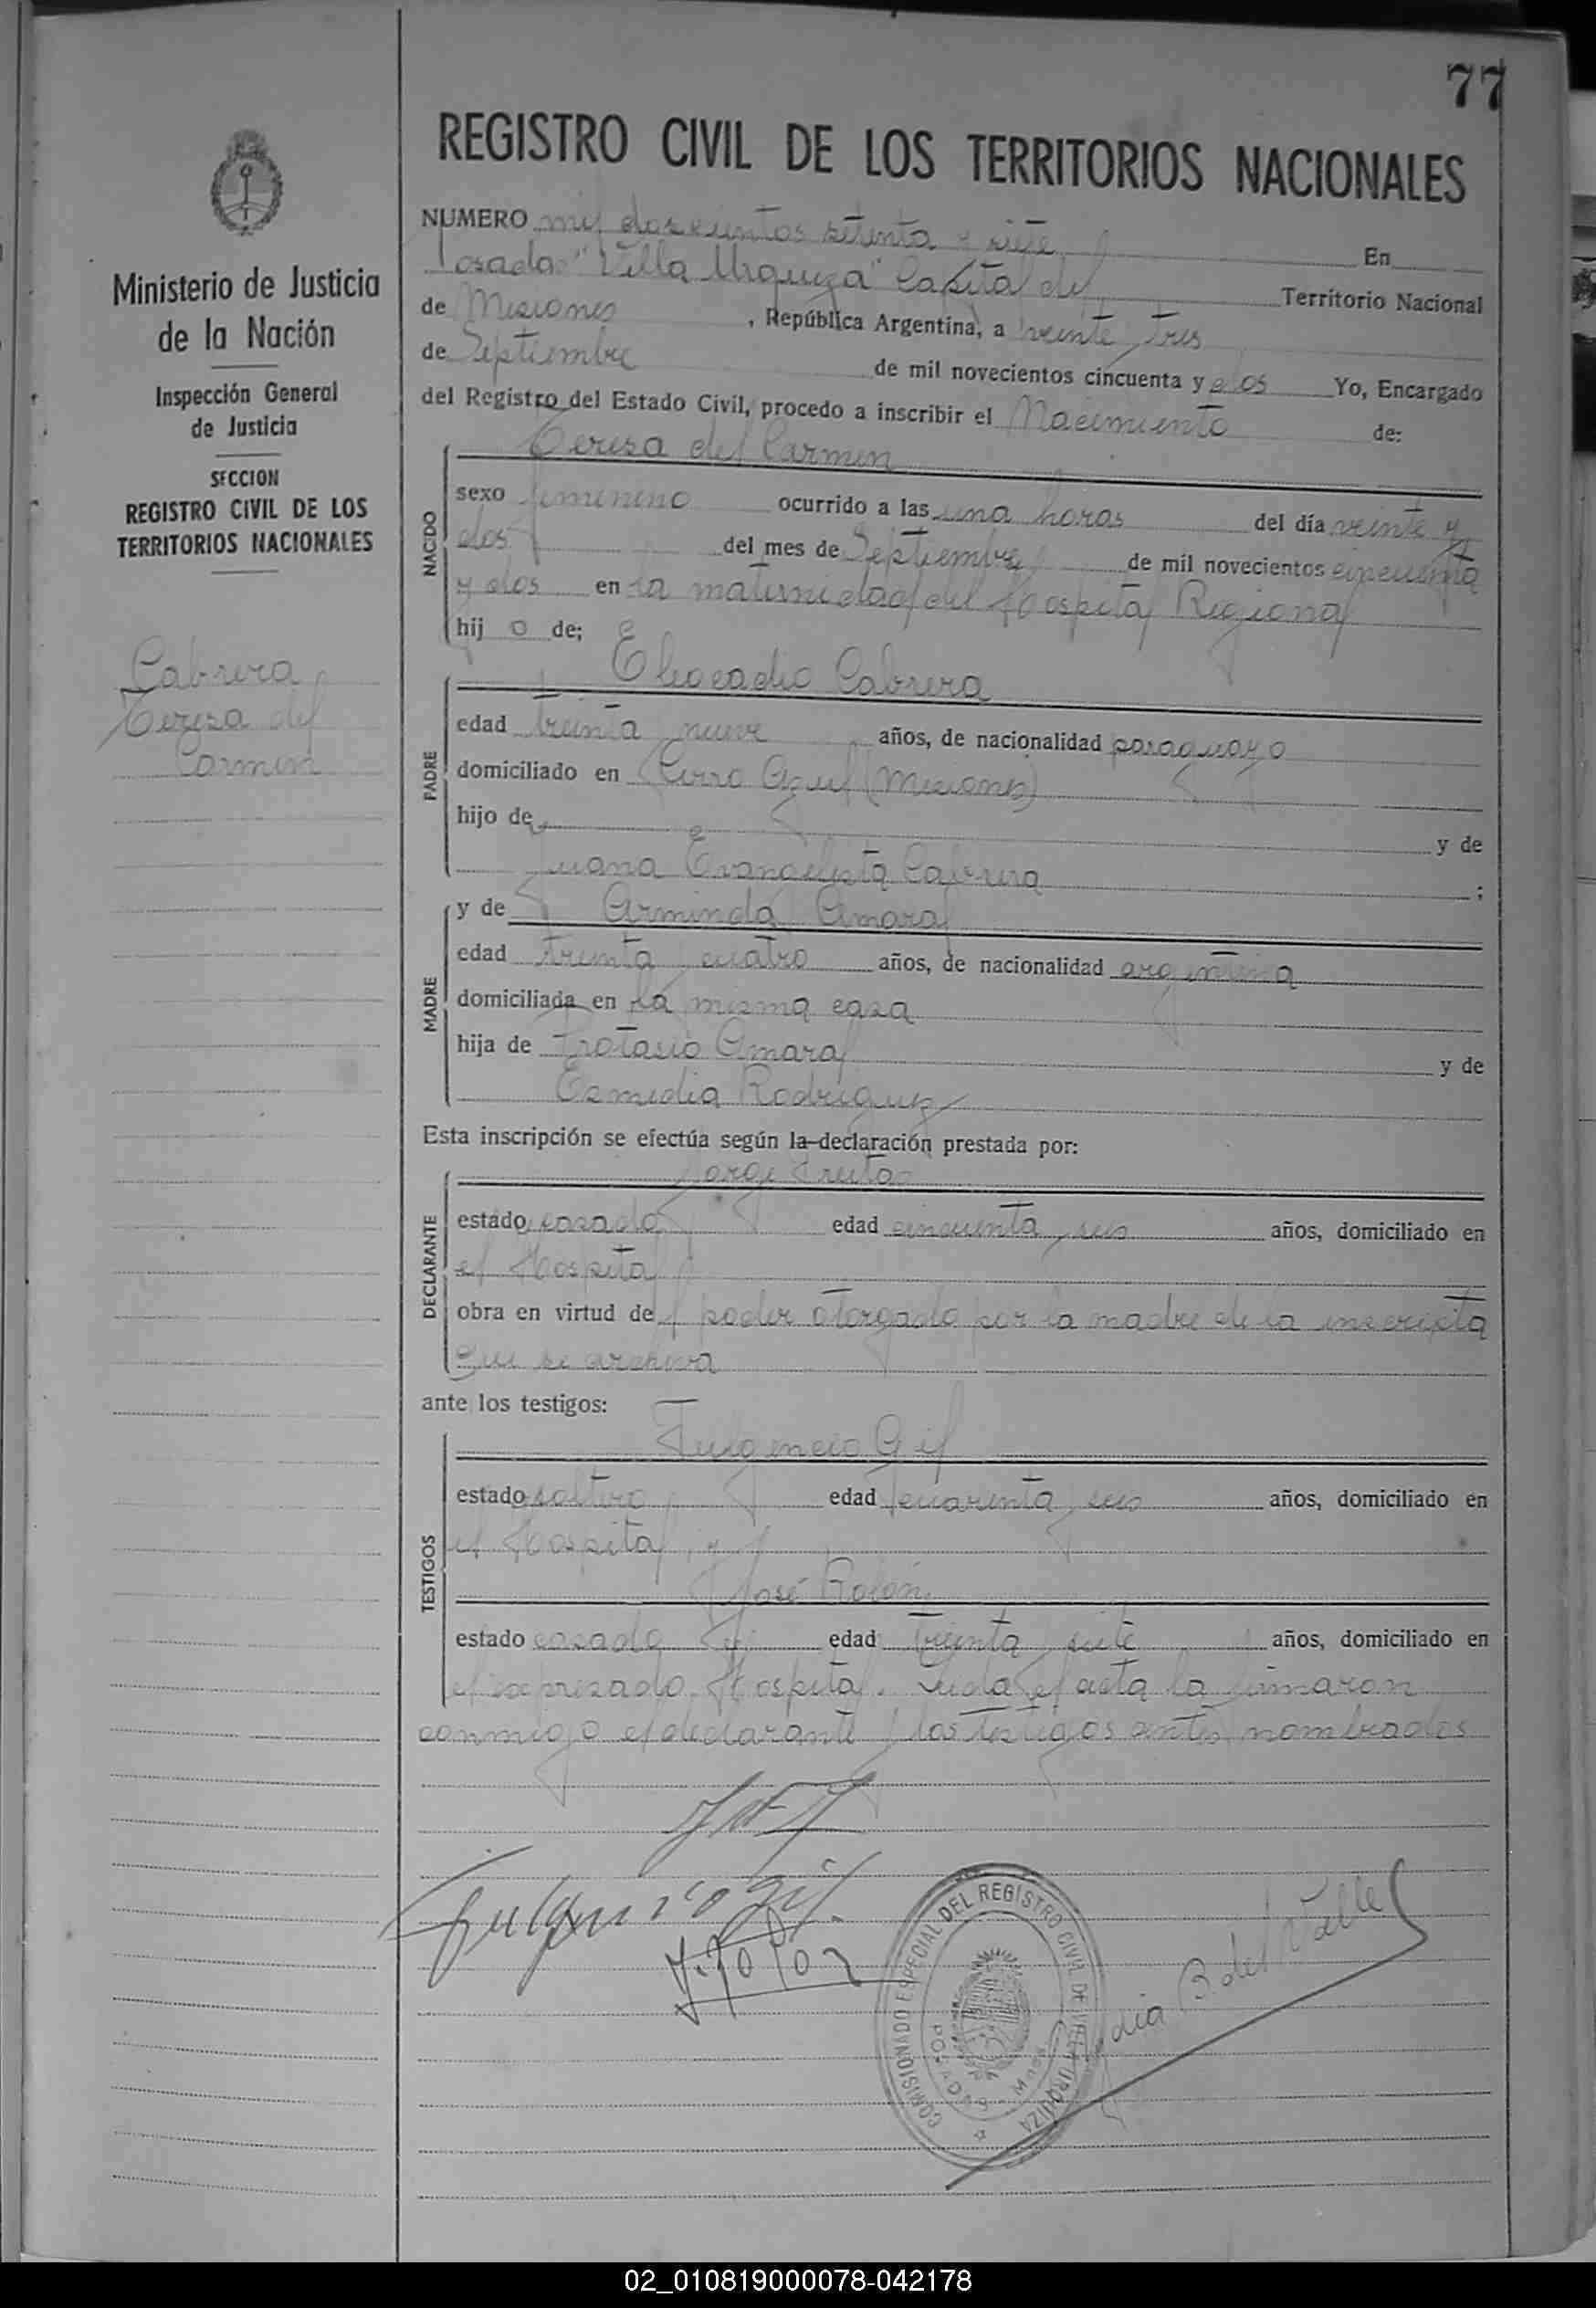 77
REGISTRO CIVIL DE LOS TERRITORIOS NACIONALES
Ministerio de Justicia
de la Nación
Inspección General
de Justicia
SECCION
REGISTRO CIVIL DE LOS
TERRITORIOS NACIONALES
Cabrera
Teresa del
Carmen
NUMERO mil doscientos setenta y siete En
Posadas "Villa Urquiza" Capital del Territorio Nacional
de Misiones , República Argentina, a veinte y tres
de Septiembre de mil novecientos cincuenta y dos Yo, Encargado
del Registro del Estado Civil, procedo a inscribir el Nacimiento de:
Teresa del Carmen
NACIDO
sexo femenino ocurrido a las una horas del día veinte y
dos del mes de Septiembre de mil novecientos cincuenta
y dos en la maternidad del Hospital Regional
hij o de;
Eleocadio Cabrera
PADRE
edad treinta y nueve años, de nacionalidad paraguayo
domiciliado en Cerro Azul (Misiones)
hijo de y de
Juana Evangelista Cabrera ;
y de Arminda Amaral
MADRE
edad treinta y cuatro años, de nacionalidad argentina
domiciliada en la misma casa
hija de Protasio Amaral y de
Esmidia Rodriguez
Esta inscripción se efectúa según la declaración prestada por:
Jorge Freitas
DECLARANTE
estado casado edad cincuenta y seis años, domiciliado en
el Hospital
obra en virtud del poder otorgado por la madre de la inscripta
que se archiva
ante los testigos:
Fulgencio Gil
TESTIGOS
estado soltero edad cuarenta y seis años, domiciliado en
el Hospital y
José Rolón
estado casado edad treinta y siete años, domiciliado en
el expresado Hospital. Leida el acta la firmaron
conmigo el declarante y los testigos antes nombrados
Fulgencio Gil
J. Rolon
COMISIONADO ESPECIAL DEL REGISTRO CIVIL DE VILLA URQUIZA
POSADAS
B. del Valle
02_010819000078-042178